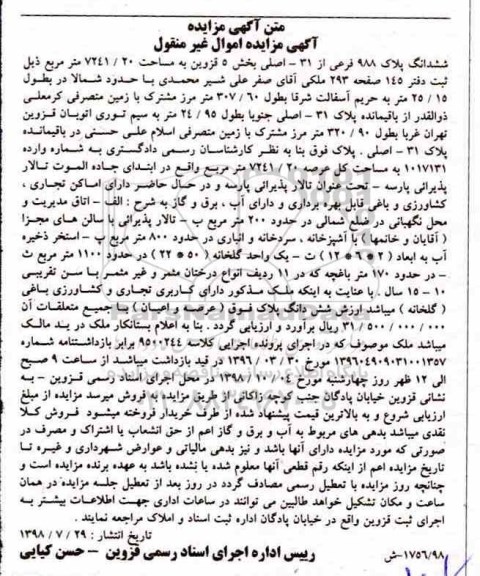 متن آگهی مزایده
آگهی مزایده اموال غیر منقول
ششدانگ پلاک ۹۸۸ فرعی از ۳۱ - اصلی بخش ۵ قزوین به مساحت ۲۰ / ۷۲۴۱ متر مربع ذیل
ثبت دفتر ۱۴۵ صفحه ۲۹۳ ملکی آقای صفر علی شیر محمدی با حدود شمالا در بطول
۱۵ / ۲۵ متر به حریم آسفالت شرقا بطول ۶۰ / ۳۰۷ متر مرز مشترک با زمین متصرفی کرمعلی
ذوالقدر از باقیمانده پلاک ۳۱ - اصلی جنوبا بطول ۹۵ / ۲۴ متر به سیم توری اتوبان قزوین
تهران غربا بطول ۹۰ / ۳۲۰ متر مرز مشترک با زمین متصرفی اسلام علی حسنی در باقیمانده
پلاک ۳۱ - اصلی . پلاک فوق بنا به نظر کارشناسان رسمی دادگستری به شماره وارده
۱۰۱۷۱۳۱ به مساحت کل عرصه ۲۰ / ۷۲۴۱ متر مربع واقع در ابتدای جاده الموت تالار
پذیرائی پارسه - تحت عنوان تالار پذیرائی پارسه و در حال حاضر دارای اماکن تجاری ،
کشاورزی و باغی قابل بهره برداری و دارای آب ، برق و گاز به شرح : الف - اتاق مدیریت و
محل نگهبانی در ضلع شمالی در حدود ۲۰۰ متر مربع ب - تالار پذیرائی با سالن های مجزا
( آقایان و خانمها ) با آشپزخانه ، سردخانه و انباری در حدود ۸۰۰ متر مربع پ - استخر ذخیره
آب به ابعاد ( ۲ * ۶ * ۱۲ ) ت - یک واحد گلخانه ( ۵۰ * ۲۲ ) در حدود ۱۱۰۰ متر مربع ث
- در حدود ۱۷۰ متر باغچه که در ۱۱ ردیف انواع درختان مثمر و غیر مثمر با سن تقریبی
۱۰ - ۱۵ سال . با عنایت به اینکه ملک مذکور دارای کاربری تجاری و کشاورزی باغی
( گلخانه ) میباشد ارزش شش دانگ پلاک فوق ( عرصه و اعیان ) با جمیع متعلقات آن
۰۰۰ / ۰۰۰ / ۵۰۰ / ۳۱ ریال برآورد و ارزیابی گردد . بنا به اعلام بستانکار ملک در ید مالک
میباشد ملک موصوف که در اجرای پرونده اجرایی کلاسه ۹۵۰۰۲۴۴ برابر بازداشتنامه شماره
۱۳۹۶۰۴۹۰۹۰۳۱۰۰۱۳۵۷ مورخ ۳۰ / ۰۳ / ۱۳۹۶ در قید بازداشت میباشد از ساعت ۹ صبح
الی ۱۲ ظهر روز چهارشنبه مورخ ۰۴ / ۱۰ / ۱۳۹۸ در محل اجرای اسناد رسمی قزوین - به
نشانی قزوین خیابان پادگان جنب کوچه زاکانی از طریق مزایده به فروش میرسد مزایده از مبلغ
ارزیابی شروع و به بالاترین قیمت پیشنهاد شده از طرف خریدار فروخته میشود فروش کلا
نقدی میباشد بدهی های مربوط به آب و برق و گاز اعم از حق انشعاب یا اشتراک و مصرف در
صورتی که مورد مزایده دارای آنها باشد و نیز بدهی مالیاتی و عوارض شهرداری و غیره تا
تاریخ مزایده اعم از اینکه رقم قطعی آنها معلوم شده یا نشده باشد به عهده برنده مزایده است و
چنانچه روز مزایده با تعطیل رسمی مصادف گردد در روز بعد از تعطیل جلسه مزایده در همان
ساعت و مکان تشکیل خواهد طالبین می توانند در ساعات اداری جهت اطلاعات بیشتر به
اجرای ثبت قزوین واقع در خیابان پادگان اداره ثبت اسناد و املاک مراجعه نمایند .
تاریخ انتشار : ۲۹ / ۷ / ۱۳۹۸
رییس اداره اجرای اسناد رسمی قزوین - حسن کیایی
۱۷۵۶/۹۸-ش